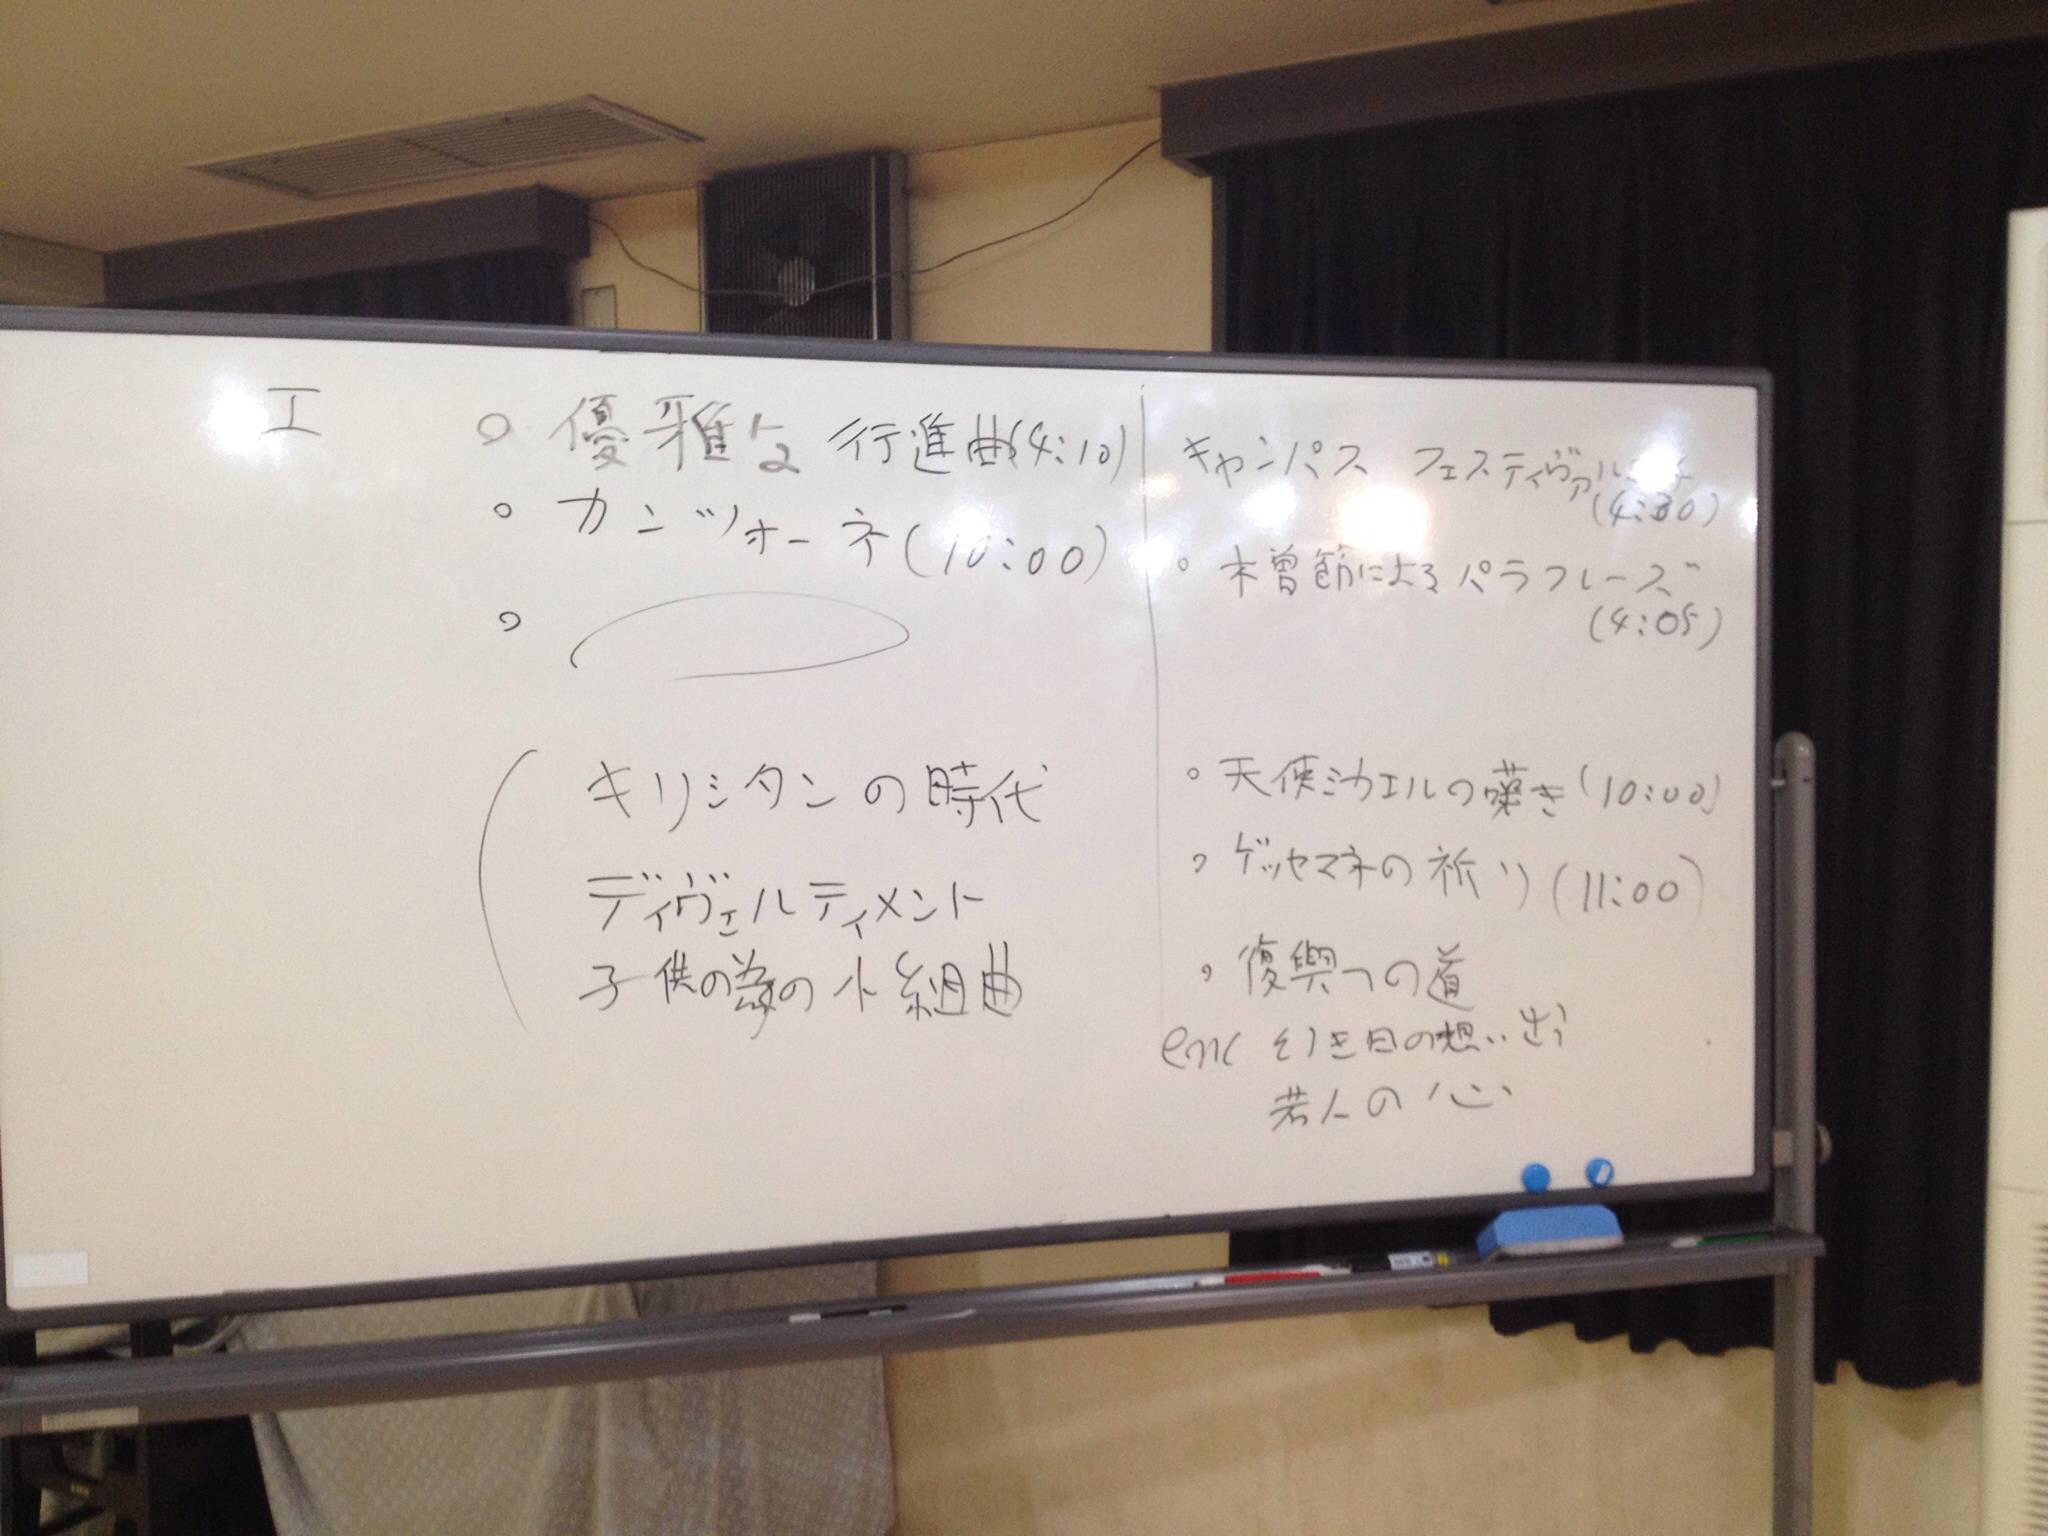 I
○ 優雅な 行進曲(4:10)
○ カンツォーネ(10:00)
○
キリシタンの時代
ディヴェルティメント
子供の為の小組曲
キャンパス フェスティヴァル
(4:30)
○ 木曽節によるパラフレーズ
(4:05)
○ 天使ミカエルの嘆き(10:00)
○ ゲッセマネの祈り(11:00)
○ 復興への道
enc 幼き日の想い出
若人の心